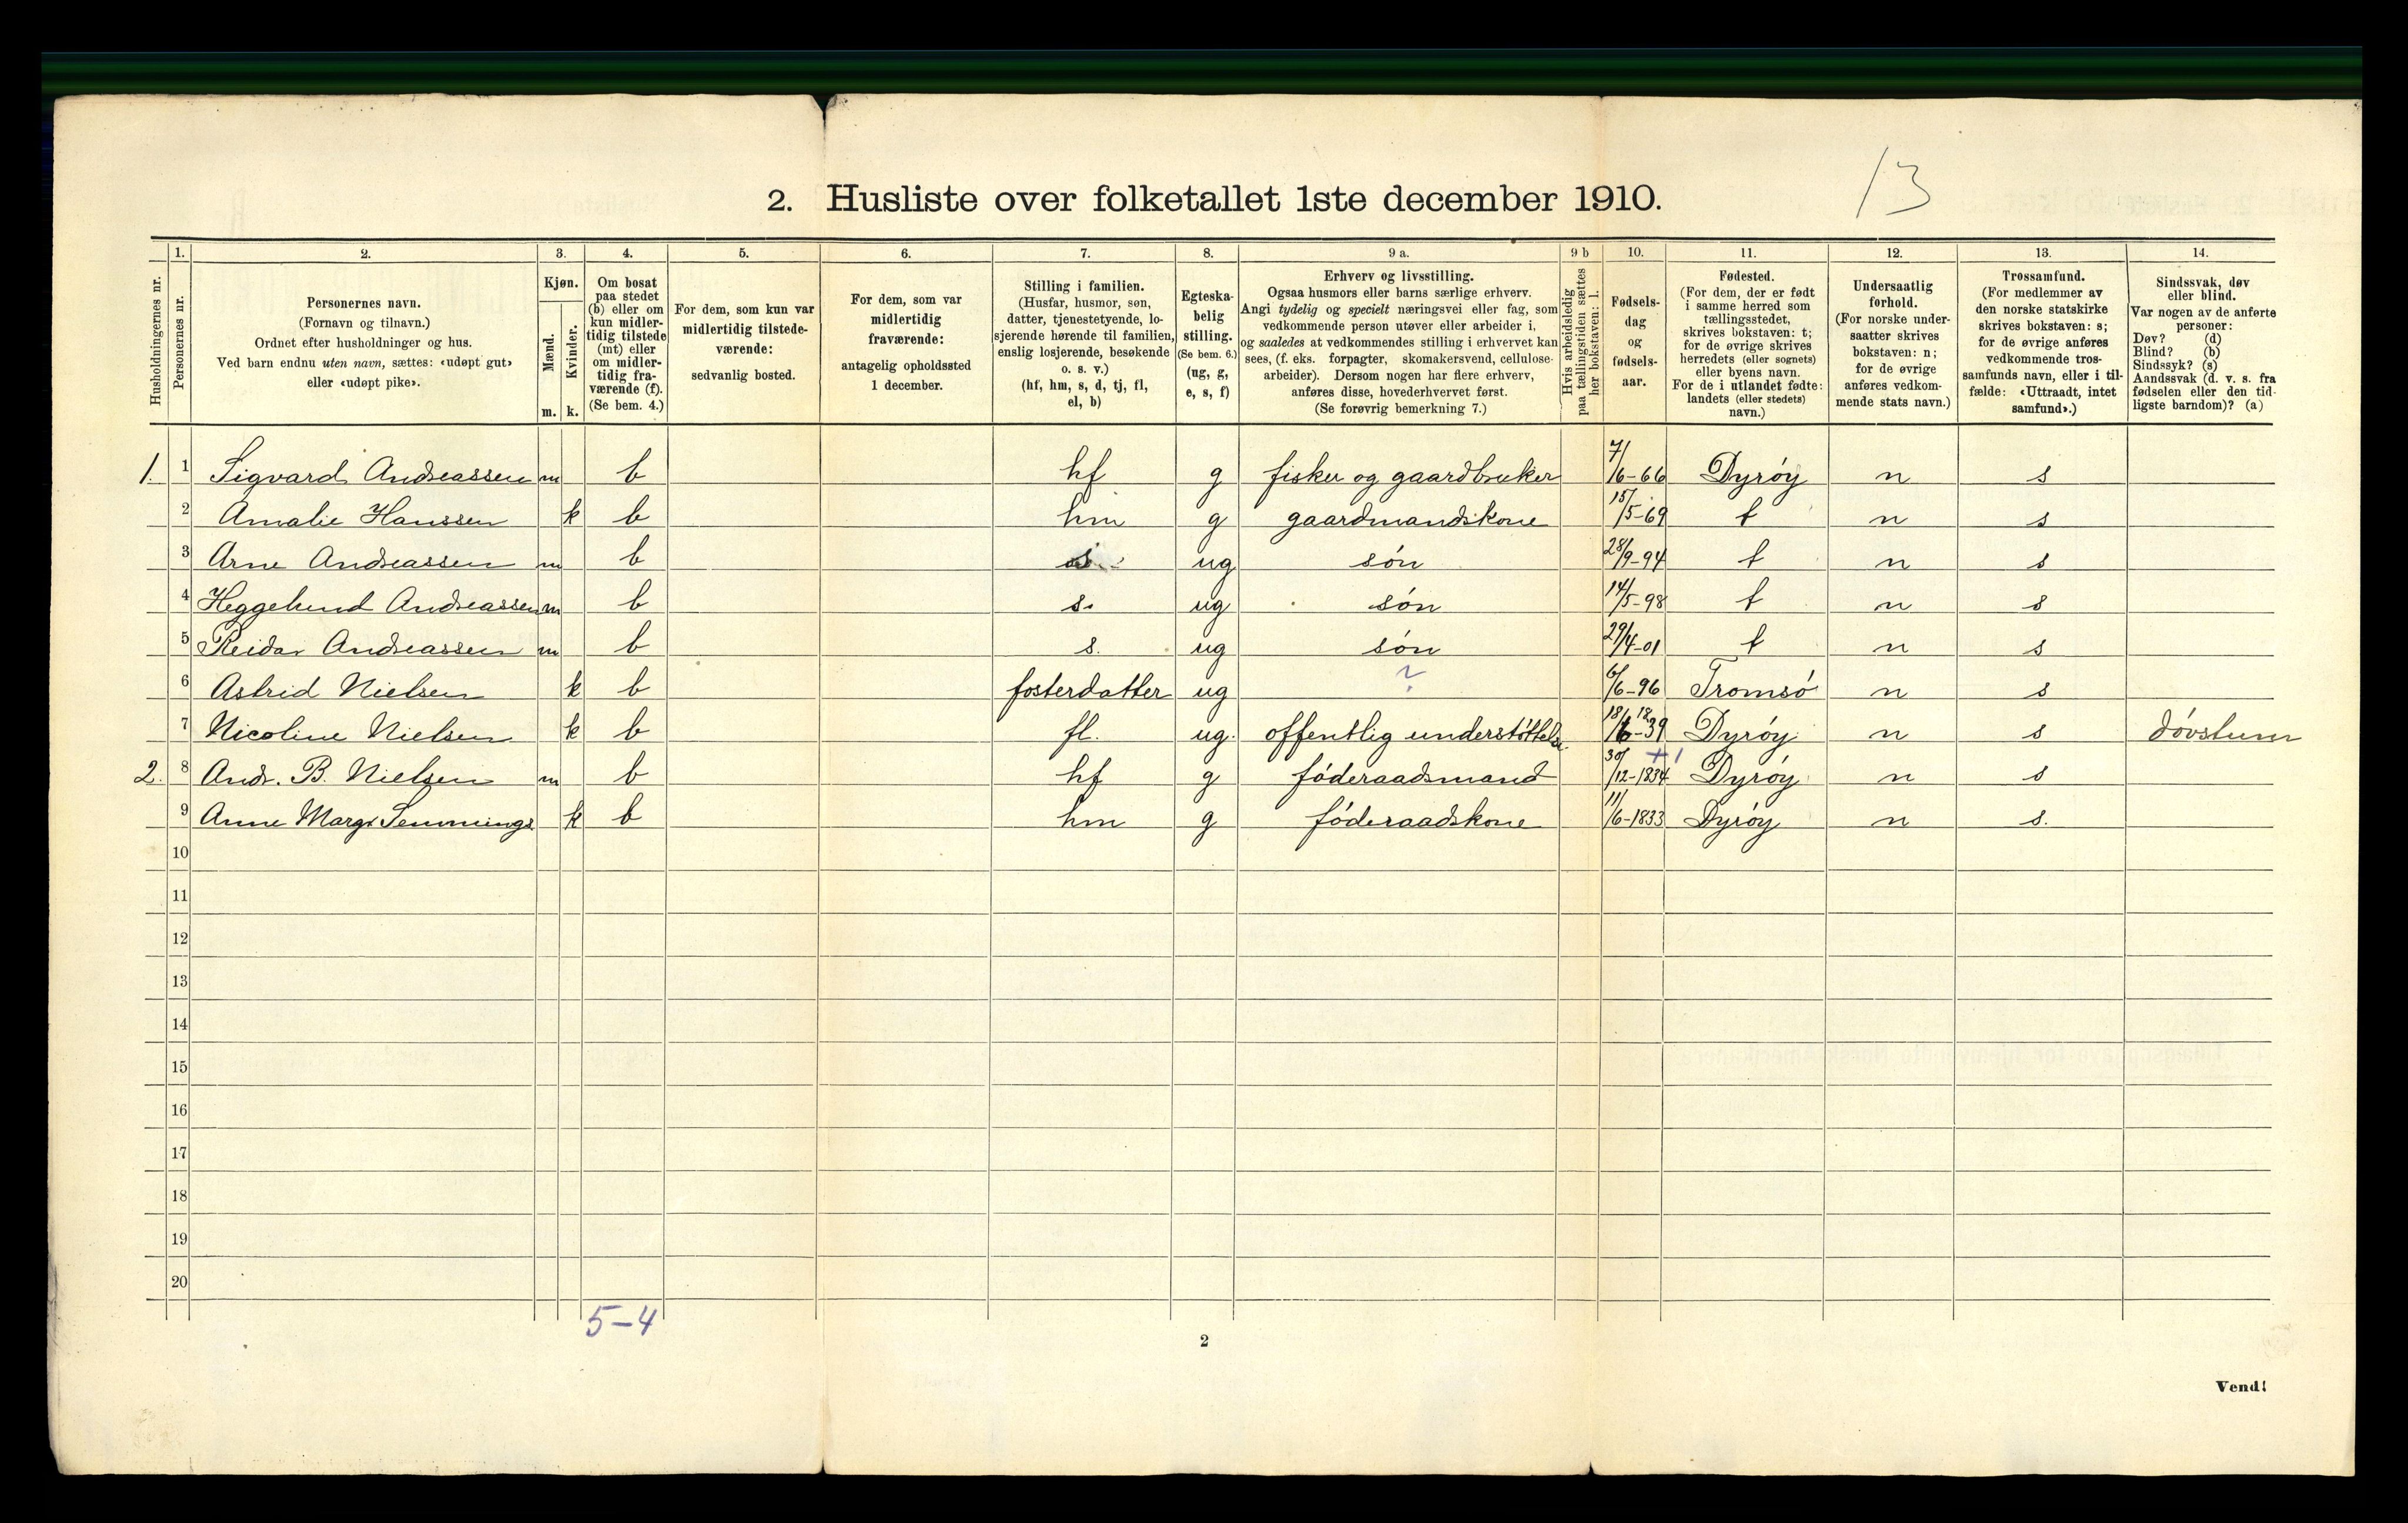 13
2. Husliste over folketallet 1ste december 1910.
1. 2. 3. 4. 5. 6. 7. 8. 9 a. 9 b 10. 11. 12. 13. 14.
Husholdningernes nr.
Personernes nr.
Personernes navn.
(Fornavn og tilnavn.)
Ordnet efter husholdninger og hus.
Ved barn endnu uten navn, sættes: «udøpt gut»
eller «udøpt pike».
Kjøn.
Mænd.
Kvinder.
m. k.
Om bosat
paa stedet
(b) eller om
kun midler-
tidig tilstede
(mt) eller
om midler-
tidig fra-
værende (f).
(Se bem. 4.)
For dem, som kun var
midlertidig tilstede-
værende:
sedvanlig bosted.
For dem, som var
midlertidig
fraværende:
antagelig opholdssted
1 december.
Stilling i familien.
(Husfar, husmor, søn,
datter, tjenestetyende, lo-
sjerende hørende til familien,
enslig losjerende, besøkende
o. s. v.)
(hf, hm, s, d, tj, fl,
el, b)
Egteska-
belig
stilling.
(Se bem. 6.)
(ug, g,
e, s, f)
Erhverv og livsstilling.
Ogsaa husmors eller barns særlige erhverv.
Angi tydelig og specielt næringsvei eller fag, som
vedkommende person utøver eller arbeider i,
og saaledes at vedkommendes stilling i erhvervet kan
sees, (f. eks. forpagter, skomakersvend, cellulose-
arbeider). Dersom nogen har flere erhverv,
anføres disse, hovederhvervet først.
(Se forøvrig bemerkning 7.)
Hvis arbeidsledig
paa tællingstiden sættes
her bokstaven: l.
Fødsels-
dag
og
fødsels-
aar.
Fødested.
(For dem, der er født
i samme herred som
tællingsstedet,
skrives bokstaven: t;
for de øvrige skrives
herredets (eller sognets)
eller byens navn.
For de i utlandet fødte:
landets (eller stedets)
navn.)
Undersaatlig
forhold.
(For norske under-
saatter skrives
bokstaven: n;
for de øvrige
anføres vedkom-
mende stats navn.)
Trossamfund.
(For medlemmer av
den norske statskirke
skrives bokstaven: s;
for de øvrige anføres
vedkommende tros-
samfunds navn, eller i til-
fælde: «Uttraadt, intet
samfund».)
Sindssvak, døv
eller blind.
Var nogen av de anførte
personer:
Døv? (d)
Blind? (b)
Sindssyk? (s)
Aandssvak (d. v. s. fra
fødselen eller den tid-
ligste barndom)? (a)
1. 1 Sigvard Andreassen m b hf g fisker og gaardbruker 7/6-66 Dyrøy n s
2 Amalie Hanssen k b hm g gaardmandskone 15/5-69 t n s
3 Arne Andreassen m b s ug søn 28/9-94 t n s
4 Heggelund Andreassen m b s. ug søn 14/5-98 t n s
5 Reidar Andreassen m b s. ug søn 29/4-01 t n s
6 Astrid Nielsen k b fosterdatter ug ? 6/6-96 Tromsø n s
7 Nicoline Nielsen k b fl. ug. offentlig understøttelse. 18/12-39 Dyrøy n s døvstum
+1
2. 8 Andr. B. Nielsen m b hf g føderaadsmand 30/12-1834 Dyrøy n s
9 Anne Margr Semmings k b hm g føderaadskone 11/6-1833 Dyrøy n s.
10
11
12
13
14
15
16
17
18
19
20
5-4
2
Vend!